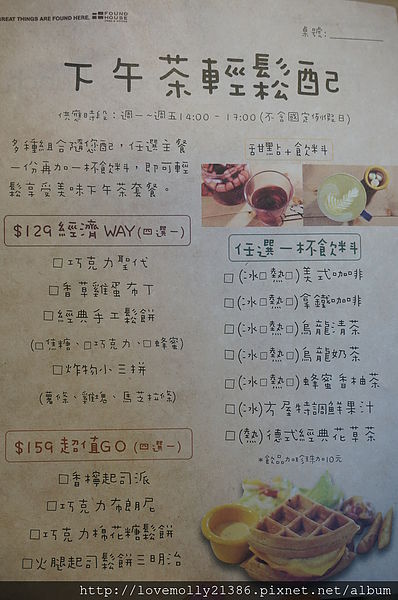 GREAT THINGS ARE FOUND HERE. FOUND HOUSE
桌號:
下午茶輕鬆配
供應時段：週一~週五14:00 - 17:00 (不含國定例假日)
多種組合隨您配，任選主餐
一份再加一杯飲料，即可輕
鬆享受美味下午茶套餐。
$129 經濟 WAY (四選一)
□巧克力聖代
□香草雞蛋布丁
□經典手工鬆餅
(□焦糖、□巧克力、□蜂蜜)
□炸物小三拼
(薯條、雞塊、馬芝拉條)
$159 超值GO (四選一)
□香檸起司派
□巧克力布朗尼
□巧克力棉花糖鬆餅
□火腿起司鬆餅三明治
甜點+飲料
任選一杯飲料
□(冰□ 熱□)美式咖啡
□(冰□ 熱□)拿鐵咖啡
□(冰□ 熱□)烏龍清茶
□(冰□ 熱□)烏龍奶茶
□(冰□ 熱□)蜂蜜香柚茶
□(冰)方屋特調鮮果汁
□(熱)德式經典花草茶
*飲品加珍珠加10元
http://lovemolly21386.pixnet.net/album